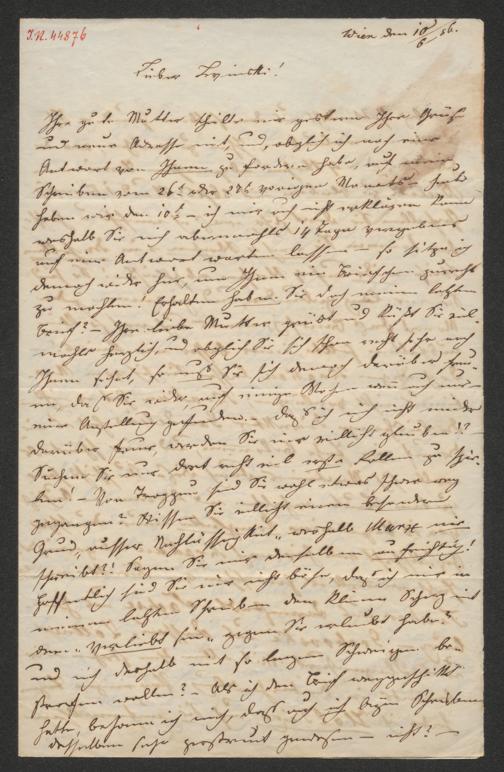 I.N. 44876
Wien den 10/6 56.
Lieber Lewinski!
Ihre gute Mutter theilte mir gestern Ihre Grüße
und neue Adresse mit, und, obgleich ich noch eine
Antwort von Ihnen zu fordern habe, auf mein
Schreiben vom 26t oder 27t vorigen Monats – heute
haben wir den 10t – ich mir auch nicht erklären kann
weshalb Sie mich abermahls 14 Tage vergebens
auf eine Antwort warten lassen – so sitze ich
dennoch wieder hier, um Ihnen ein Briefchen zurecht
zu machen! Erhalten haben Sie doch meinen letzten
Brief? – Ihre liebe Mutter grüßt und küßt Sie viel-
mahls herzlich, und obgleich Sie sich schon recht sehr nach
Ihnen sehnt, so muß Sie sich dennoch darüber freu-
en, daß Sie wieder auf einige Wochen wenn auch nur
eine Anstellung gefunden. – daß ich mich nicht minder
darüber freue, werden Sie mir vielleicht glauben!?
Suchen Sie nur dort recht viel erste Rollen zu spie-
len! – Von Troppau sind Sie wohl etwas schwer weg
gegangen? Wissen Sie vielleicht einen besondern
Grund, ausser Nachlässigkeit, weshalb Marx mir
schreibt?! Sagen Sie mir denselben aufrichtig!
Hoffentlich sind Sie mir nicht böse, daß ich mir in
meinem letzten Schreiben den kleinen Scherz mit
dem "verliebt sein" gegen Sie erlaubt habe?
und mich deshalb mit so langem Schweigen be-
strafen wollen? – Als ich den Brief weggeschickt
hatte, besann ich mich, dass ich beym Schreiben
desselben sehr zerstreut gewesen – nicht? –